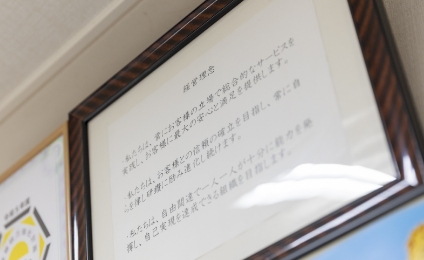 経営理念
私たちは、常にお客様の立場で総合的なサービスを
実践し、お客様に最大の安心と満足を提供します。
私たちは、お客様との信頼の確立を目指し、常に自
己を律し研鑽に励み進化し続けます。
私たちは、自由闊達で一人一人が十分に能力を発
揮し、自己実現を達成できる組織を目指します。